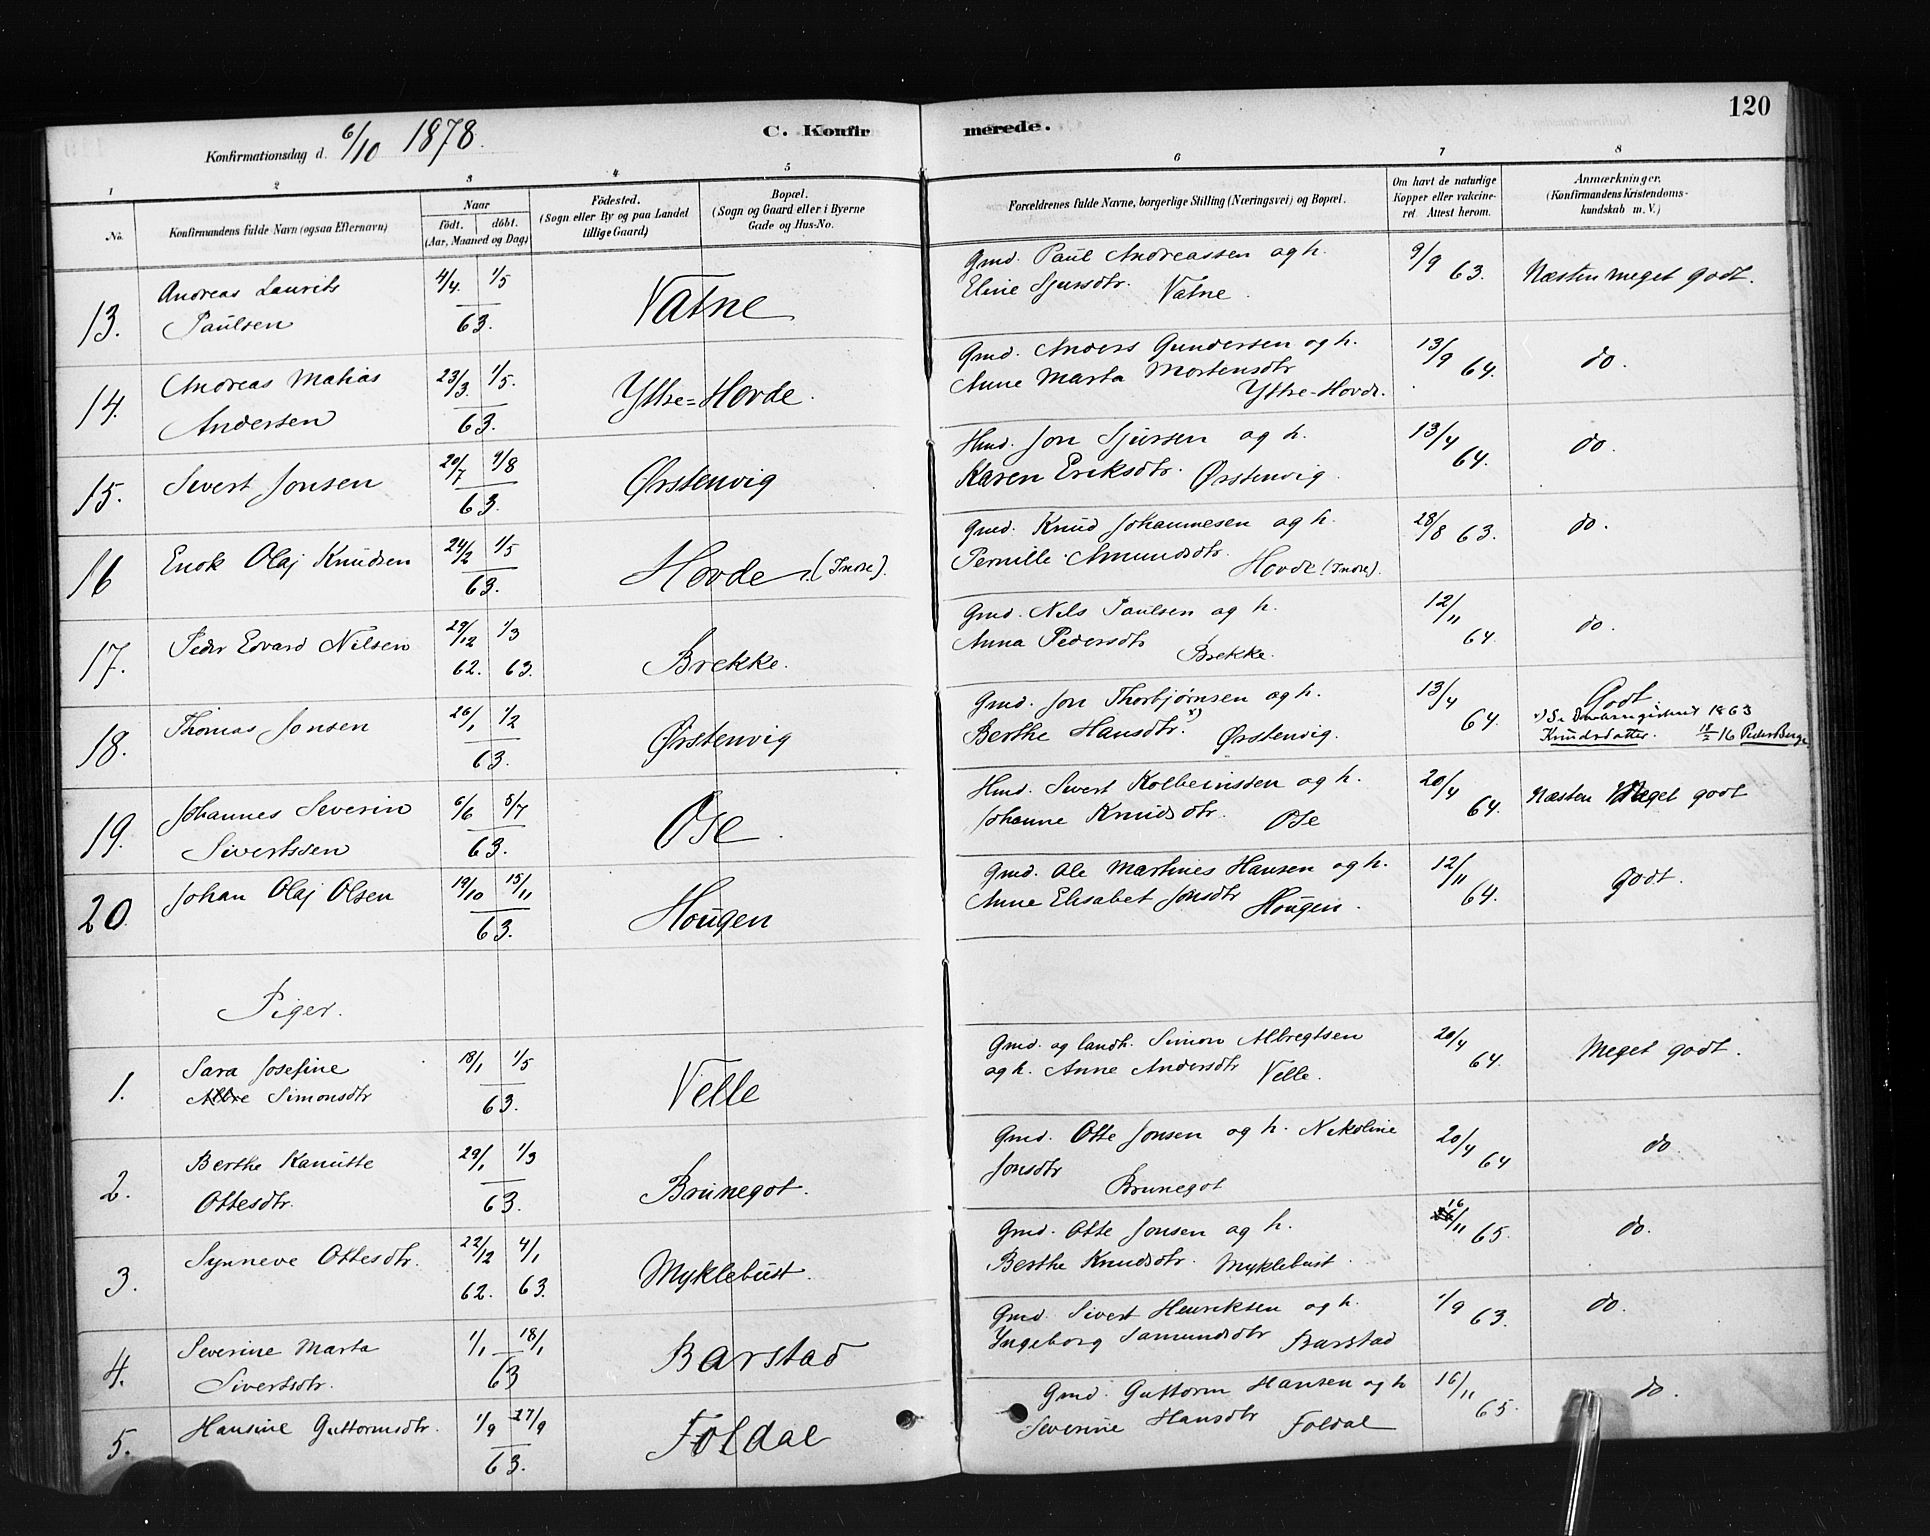 120
Konfirmationsdag d. 6/10 1878.
C. Konfirmerede.
1 2 3 4 5 6 7 8
No.
Konfirmandens fulde Navn (ogsaa Efternavn)
Naar
Födt. döbt.
(Aar, Maaned og Dag)
Födested.
(Sogn eller By og paa Landet
tillige Gaard)
Bopæl.
(Sogn og Gaard eller i Byerne
Gade og Hus-No.
Forældrenes fulde Navne, borgerlige Stilling (Næringsvei) og Bopæl.
Om havt de naturlige
Kopper eller vakcine-
ret. Attest herom.
Anmærkninger.
(Konfirmandens Kristendoms-
kundskab m. V.)
13. Andreas Laurits 4/4. 1/5 Vatne Gmd. Paul Andreassen og h. 9/9 63. Næsten meget godt.
Paulsen 63. Eline Sjursdtr. Vatne.
14. Andreas Matias 23/3. 1/5. Yttre=Hovde. Gmd. Anders Gundersen og h. 13/9 64. do.
Andersen 63. Anne Marta Mortensdtr
Yttre-Hovde.
15. Sivert Jonsen 20/7 9/8 Ørstenvig Hmd. Jon Sjursen og h. 13/4 64. do.
63. Karen Eriksdtr. Ørstenvig.
16 Enok Olaj Knudsen 24/2 1/5 Hovde (Indre). Gmd. Knud Johannesen og h. 28/8 63. do.
63. Pernille Amundsdtr. Hovde (Indre).
17. Peder Edvard Nilsen 29/12 1/3 Brekke. Gmd. Nils Paulsen og h. 12/11 64. do.
62. 63. Anna Pedersdtr Brekke.
18. Thomas Jonsen 26/1 1/2 Ørstenvig Gmd. Jon Thorbjørnsen og h. 13/4 64. Godt
63. Berthe Hansdtr. x) Ørstenvig. x) Se 1863
Knudsdatter. 18/2 16 Peder Berge
19. Johannes Severin 6/6 5/7 Ose. Hmd. Sivert Kolbeinsen og h. 20/4 64. Næsten Meget godt
Sivertssen 63. Johanne Knudsdtr. Ose
20. Johan Olaj Olsen 19/10 15/11 Hougen Gmd. Ole Martines Hansen og h. 12/11 64. Godt.
63. Anne Elisabet Jonsdtr Hougen.
Piger.
1. Sara Josefine 18/1 1/5 Velle Gmd. og landh. Simon Albregtsen 20/4 64. Meget godt.
Simonsdtr 63. og h. Anne Andersdtr Velle.
2. Berthe Kanutte 29/1 1/3 Brunegot. Gmd. Otte Jonsen og h. Nikoline 20/4 64 do
Ottesdtr. 63. Jonsdtr Brunegot
3. Synneve Ottesdtr. 22/12 4/1 Myklebust. Gmd. Otte Jonsen og h. 16/11 65. do.
62. 63. Berthe Knudsdtr. Myklebust.
4. Severine Marta 1/1 18/1 Barstad Gmd. Sivert Henriksen og h. 1/9 63. do.
Sivertsdtr. 63 Ingeborg Samundsdtr Barstad
5. Hansine Guttormsdtr. 1/9 27/9 Foldal Gmd. Guttorm Hansen og h 16/11 65. do.
63. Severine Hansdtr Foldal